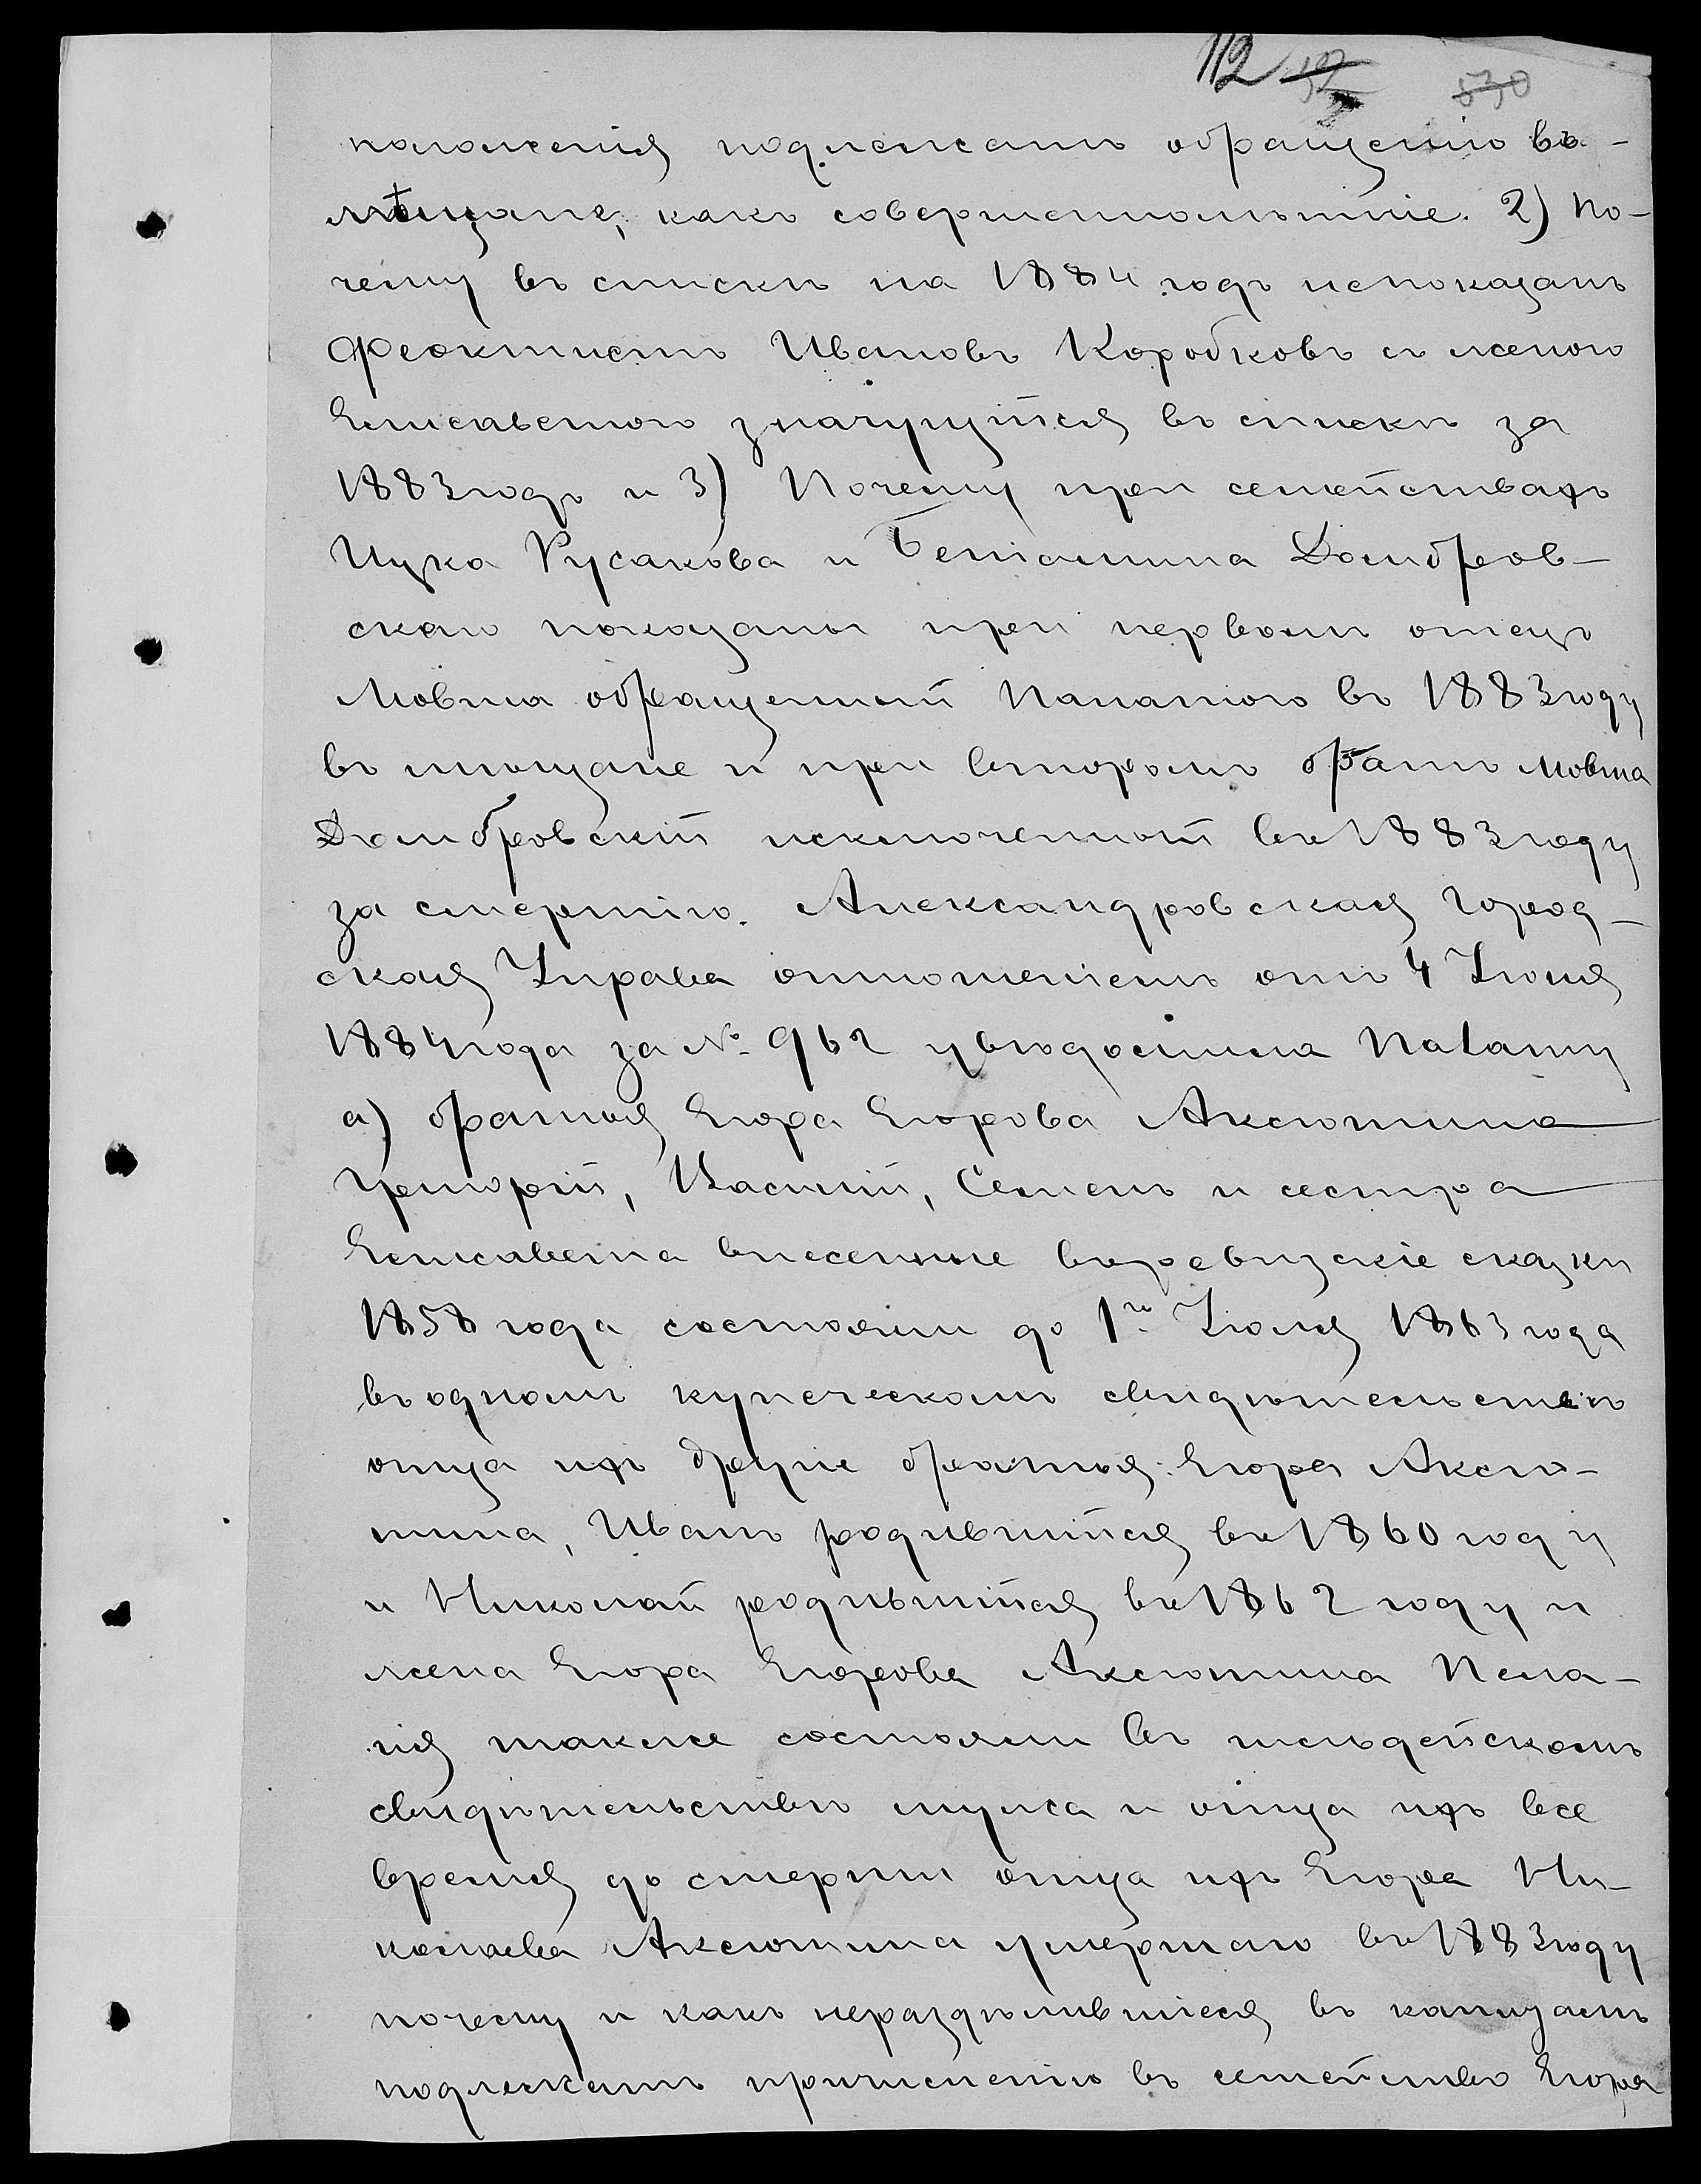 112 59 530
положенія подлежатъ обращенію въ-
мѣщане, какъ совершеннолѣтніе. 2) По-
чему въ спискѣ на 1884 годъ непоказанъ
Феоктистъ Ивановъ Коробковъ съ женою
Елисаветою значущійся въ спискѣ за
1883 годъ и 3) Почему при семействахъ
Ицка Русакова и Беніамина Домбров-
скаго показаны при первомъ отецъ
Мовша обращенный Палатою въ 1883 году
въ мѣщане и при второмъ братъ Мовша
Домбровскій исключенный въ 1883 году
за смертію. Александровская Город-
ская Управа отношеніемъ отъ 4 Іюня
1884 года за № 962 увѣдомила Палату
а) братья Егора Егорова Аксютина
Григорій, Василій, Семенъ и сестра
Елисавета внесенные въ ревизскіе сказки
1858 года состояли до 1го Іюля 1863 года
въ одномъ купеческомъ свидѣтельствѣ
отца ихъ другіе братья Егора Аксю-
тина, Иванъ родившійся въ 1860 году
и Николай родившійся въ 1862 году и
жена Егора Егорова Аксютина Пела-
гія также состояли въ гильдейскомъ
свидѣтельствѣ мужа и отца ихъ все
время до смерти отца ихъ Егора Ни-
колаева Аксютина умершаго въ 1883 году
почему и какъ нераздѣлившіеся въ капиталѣ
подлежатъ причисленію въ семейство Егора